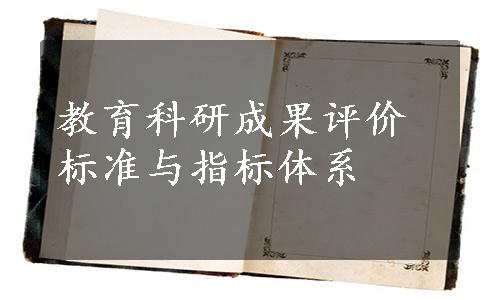 教育科研成果评价
标准与指标体系